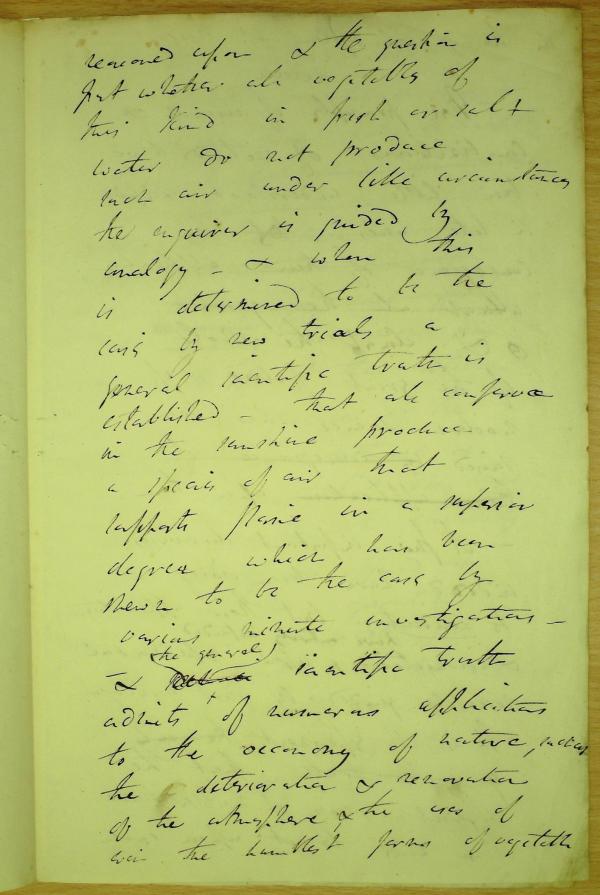 reasoned upon & the question is
put whether all vegetables of
this kind in fresh or salt
water do not produce
such air under like circumstances
the enquirer is guided by
analogy - & when this
is determined to be the
case by new trials a
general scientific truth is
established - that all confervae
in the sunshine produce
a species of air that
supports flame in a superior
degree which has been
shewn to be the case by
various minute investigations -
the general
- & scientific truth
admits of numerous applications
to the oeconomy of nature,
the deterioration & renovation
of the atmosphere & the uses of
even the humblest forms of vegetable